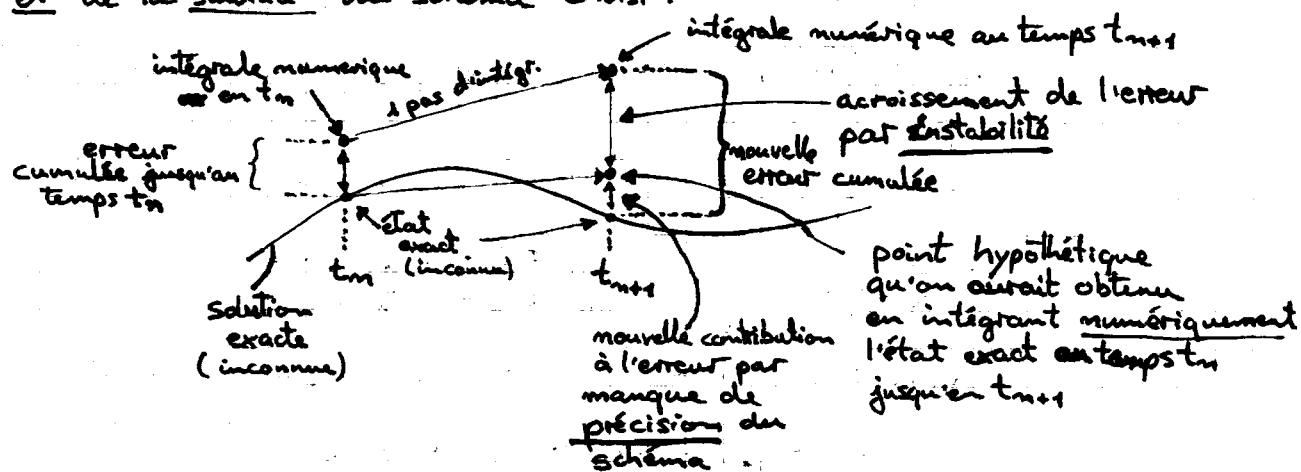 et de la stabilité du schéma choisi.
intégrale numérique au temps tn+1
intégrale numérique
en tn
1 pas d'intégr.
acroissement de l'erreur
par instabilité
erreur
cumulée jusqu'au
temps tn
nouvelle
erreur cumulée
état
exact
(inconnu)
tn
tn+1
solution
exacte
(inconnue)
nouvelle contribution
à l'erreur par
manque de
précision du
schéma.
point hypothétique
qu'on aurait obtenu
en intégrant numériquement
l'état exact au temps tn
jusqu'en tn+1